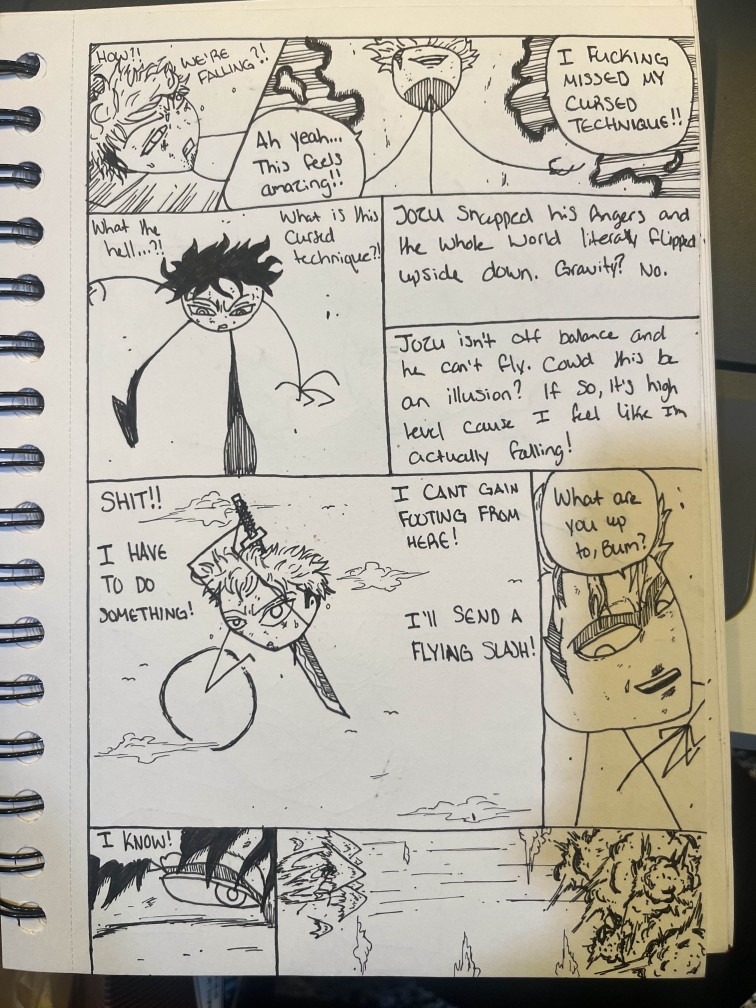 HOW?!
WE'RE
FALLING?!
Ah yeah...
This feels
amazing!!
I FUCKING
MISSED MY
CURSED
TECHNIQUE!!
What the
hell...?!
What is this
Cursed
technique?!
Jozu Snapped his fingers and
the whole World literally flipped
upside down. Gravity? No.
Jozu isn't off balance and
he can't fly. Could this be
an illusion? If So, it's high
level cause I feel like I'm
actually falling!
SHIT!!
I HAVE
TO DO
SOMETHING!
I CANT GAIN
FOOTING FROM
HERE!
I'LL SEND A
FLYING SLASH!
What are
you up
to, Bum?
I KNOW!